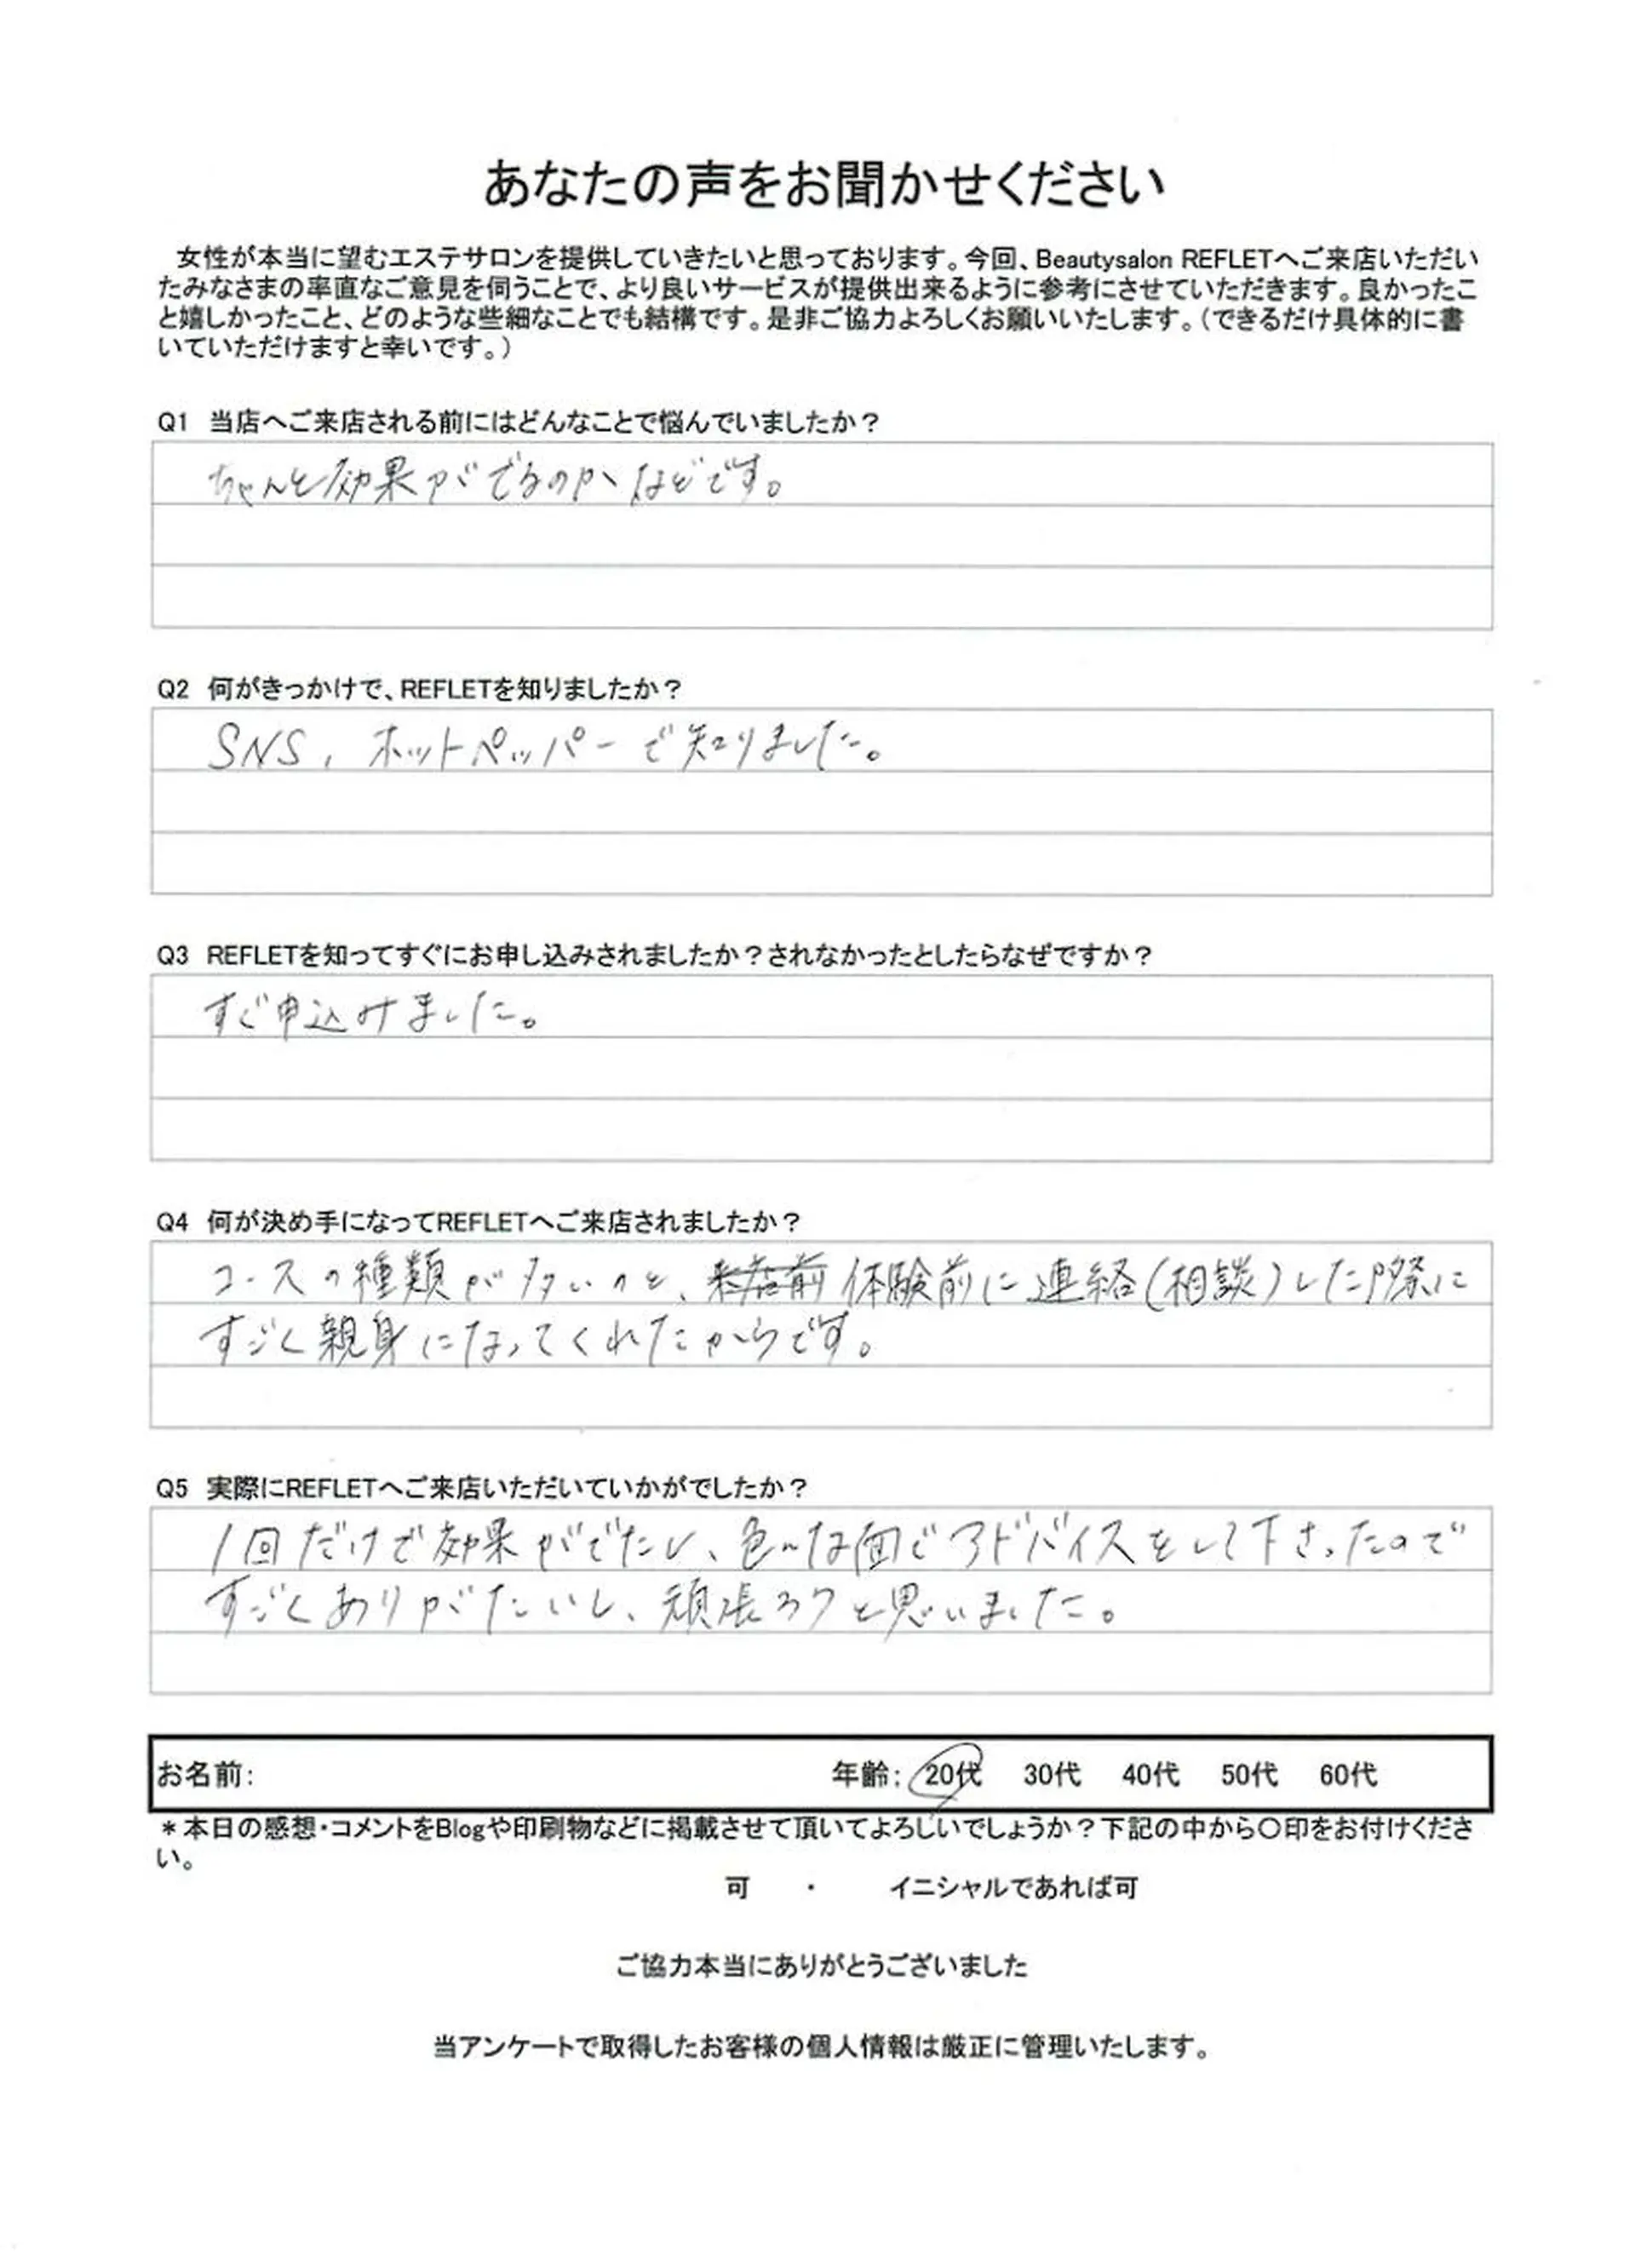 あなたの声をお聞かせください
女性が本当に望むエステサロンを提供していきたいと思っております。今回、Beautysalon REFLETへご来店いただい
たみなさまの率直なご意見を伺うことで、より良いサービスが提供出来るように参考にさせていただきます。良かったこ
と嬉しかったこと、どのような些細なことでも結構です。是非ご協力よろしくお願いいたします。（できるだけ具体的に書
いていただけますと幸いです。）
Q1 当店へご来店される前にはどんなことで悩んでいましたか？
ちゃんと効果がでるのかなどです。
Q2 何がきっかけで、REFLETを知りましたか？
SNS，ホットペッパーで知りました。
Q3 REFLETを知ってすぐにお申し込みされましたか？されなかったとしたらなぜですか？
すぐ申込みました。
Q4 何が決め手になってREFLETへご来店されましたか？
コースの種類が多いのと、来店前 体験前に連絡(相談)した際に
すごく親身になってくれたからです。
Q5 実際にREFLETへご来店いただいていかがでしたか？
1回だけで効果がでたし、色々な面でアドバイスをして下さったので
すごくありがたいし、頑張ろうと思いました。
お名前： 年齢： 20代 30代 40代 50代 60代
＊本日の感想・コメントをBlogや印刷物などに掲載させて頂いてよろしいでしょうか？下記の中から〇印をお付けくださ
い。
可 ・ イニシャルであれば可
ご協力本当にありがとうございました
当アンケートで取得したお客様の個人情報は厳正に管理いたします。